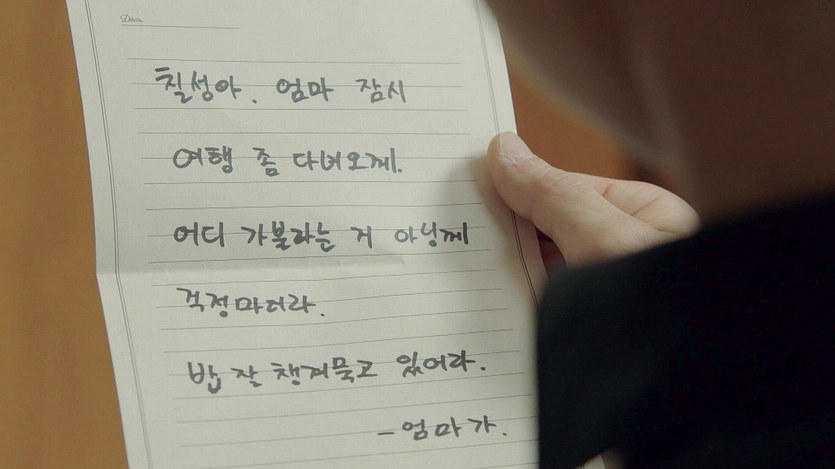 Dear.
칠성아. 엄마 잠시
여행 좀 다녀오께.
어디 가볼라는 거 아닝께
걱정마러라.
밥 잘 챙겨묵고 있어라.
-엄마가.